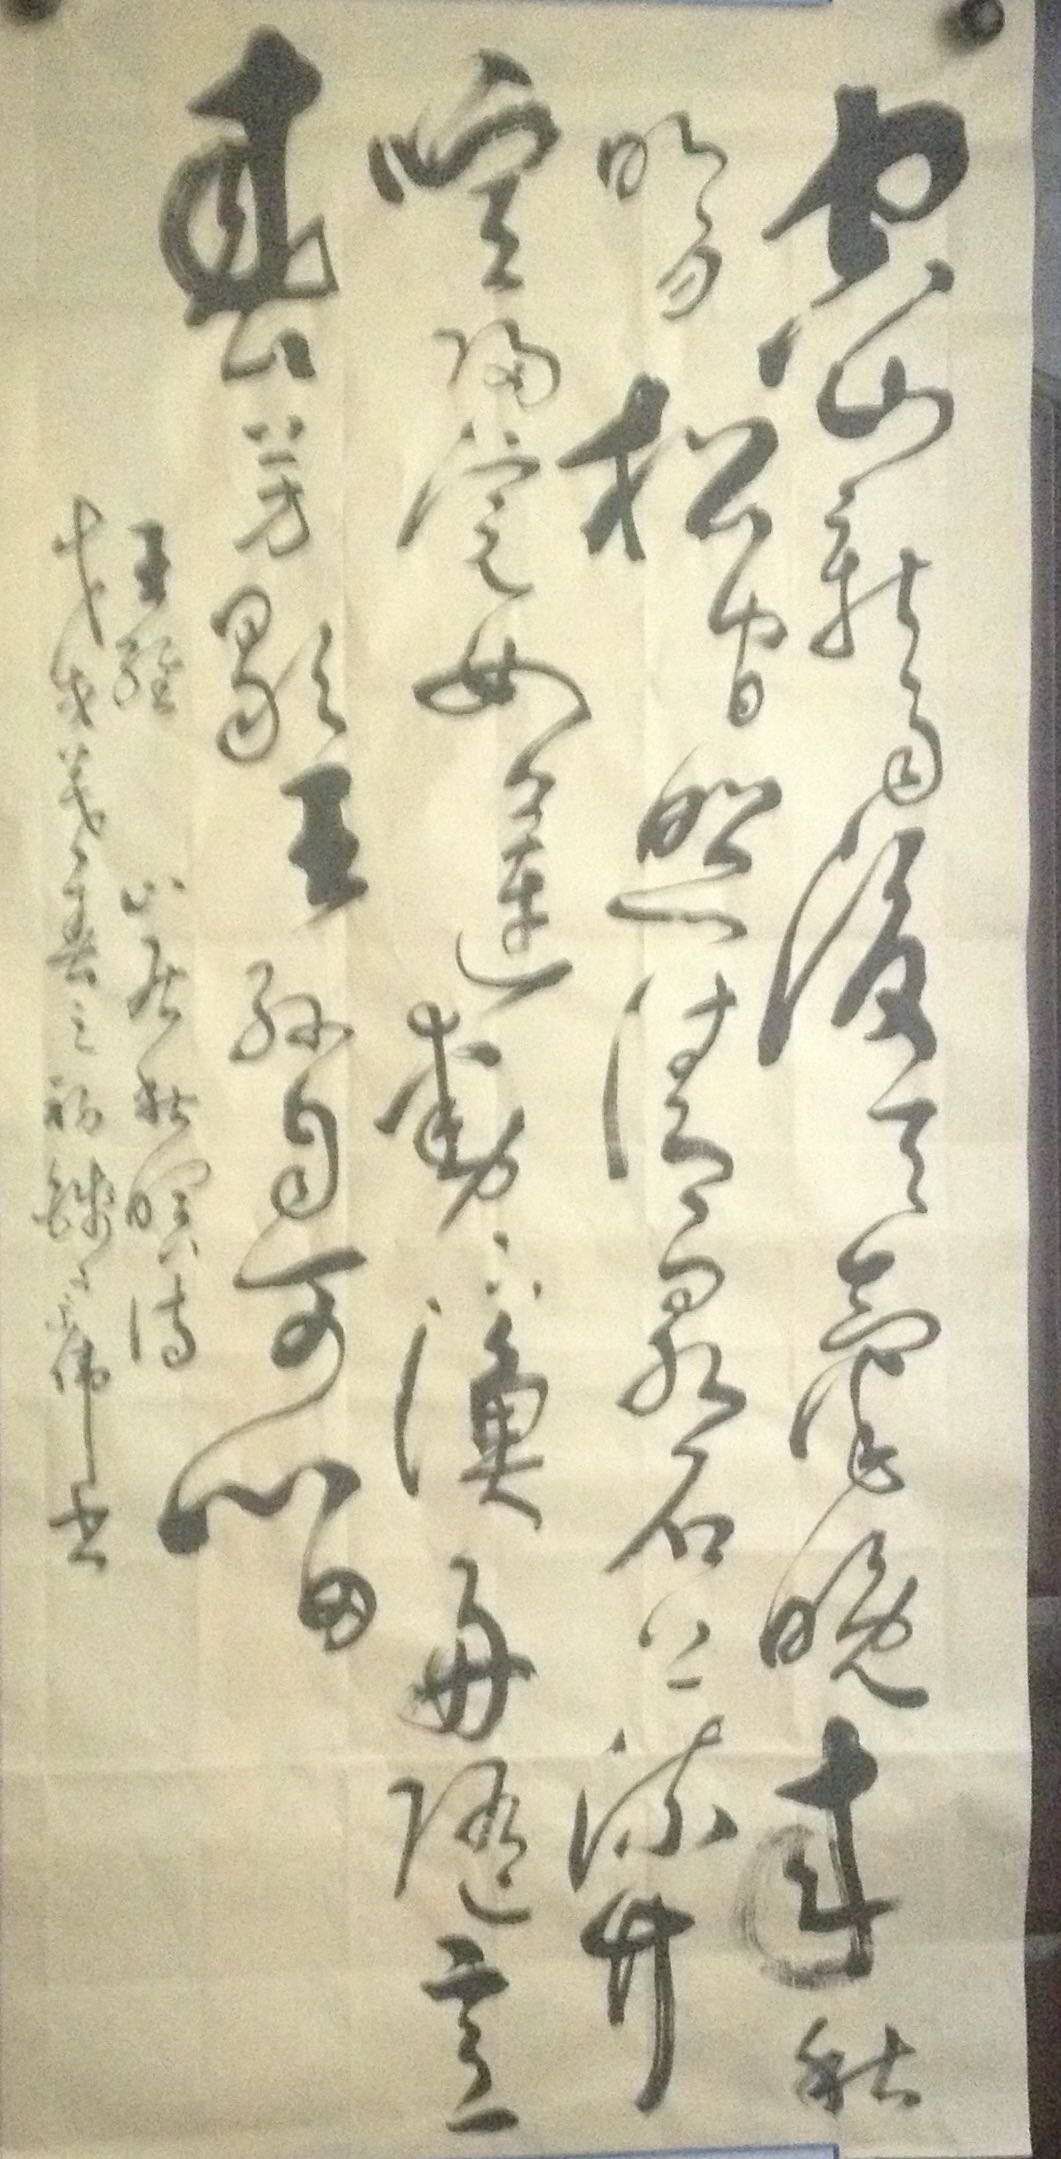 空山新雨後天氣晚來秋
明月松間照清泉石上流竹
喧歸浣女蓮動下漁舟隨意
春芳歇王孫自可留
王維 山居秋暝詩
戊戌 春之初 偉書